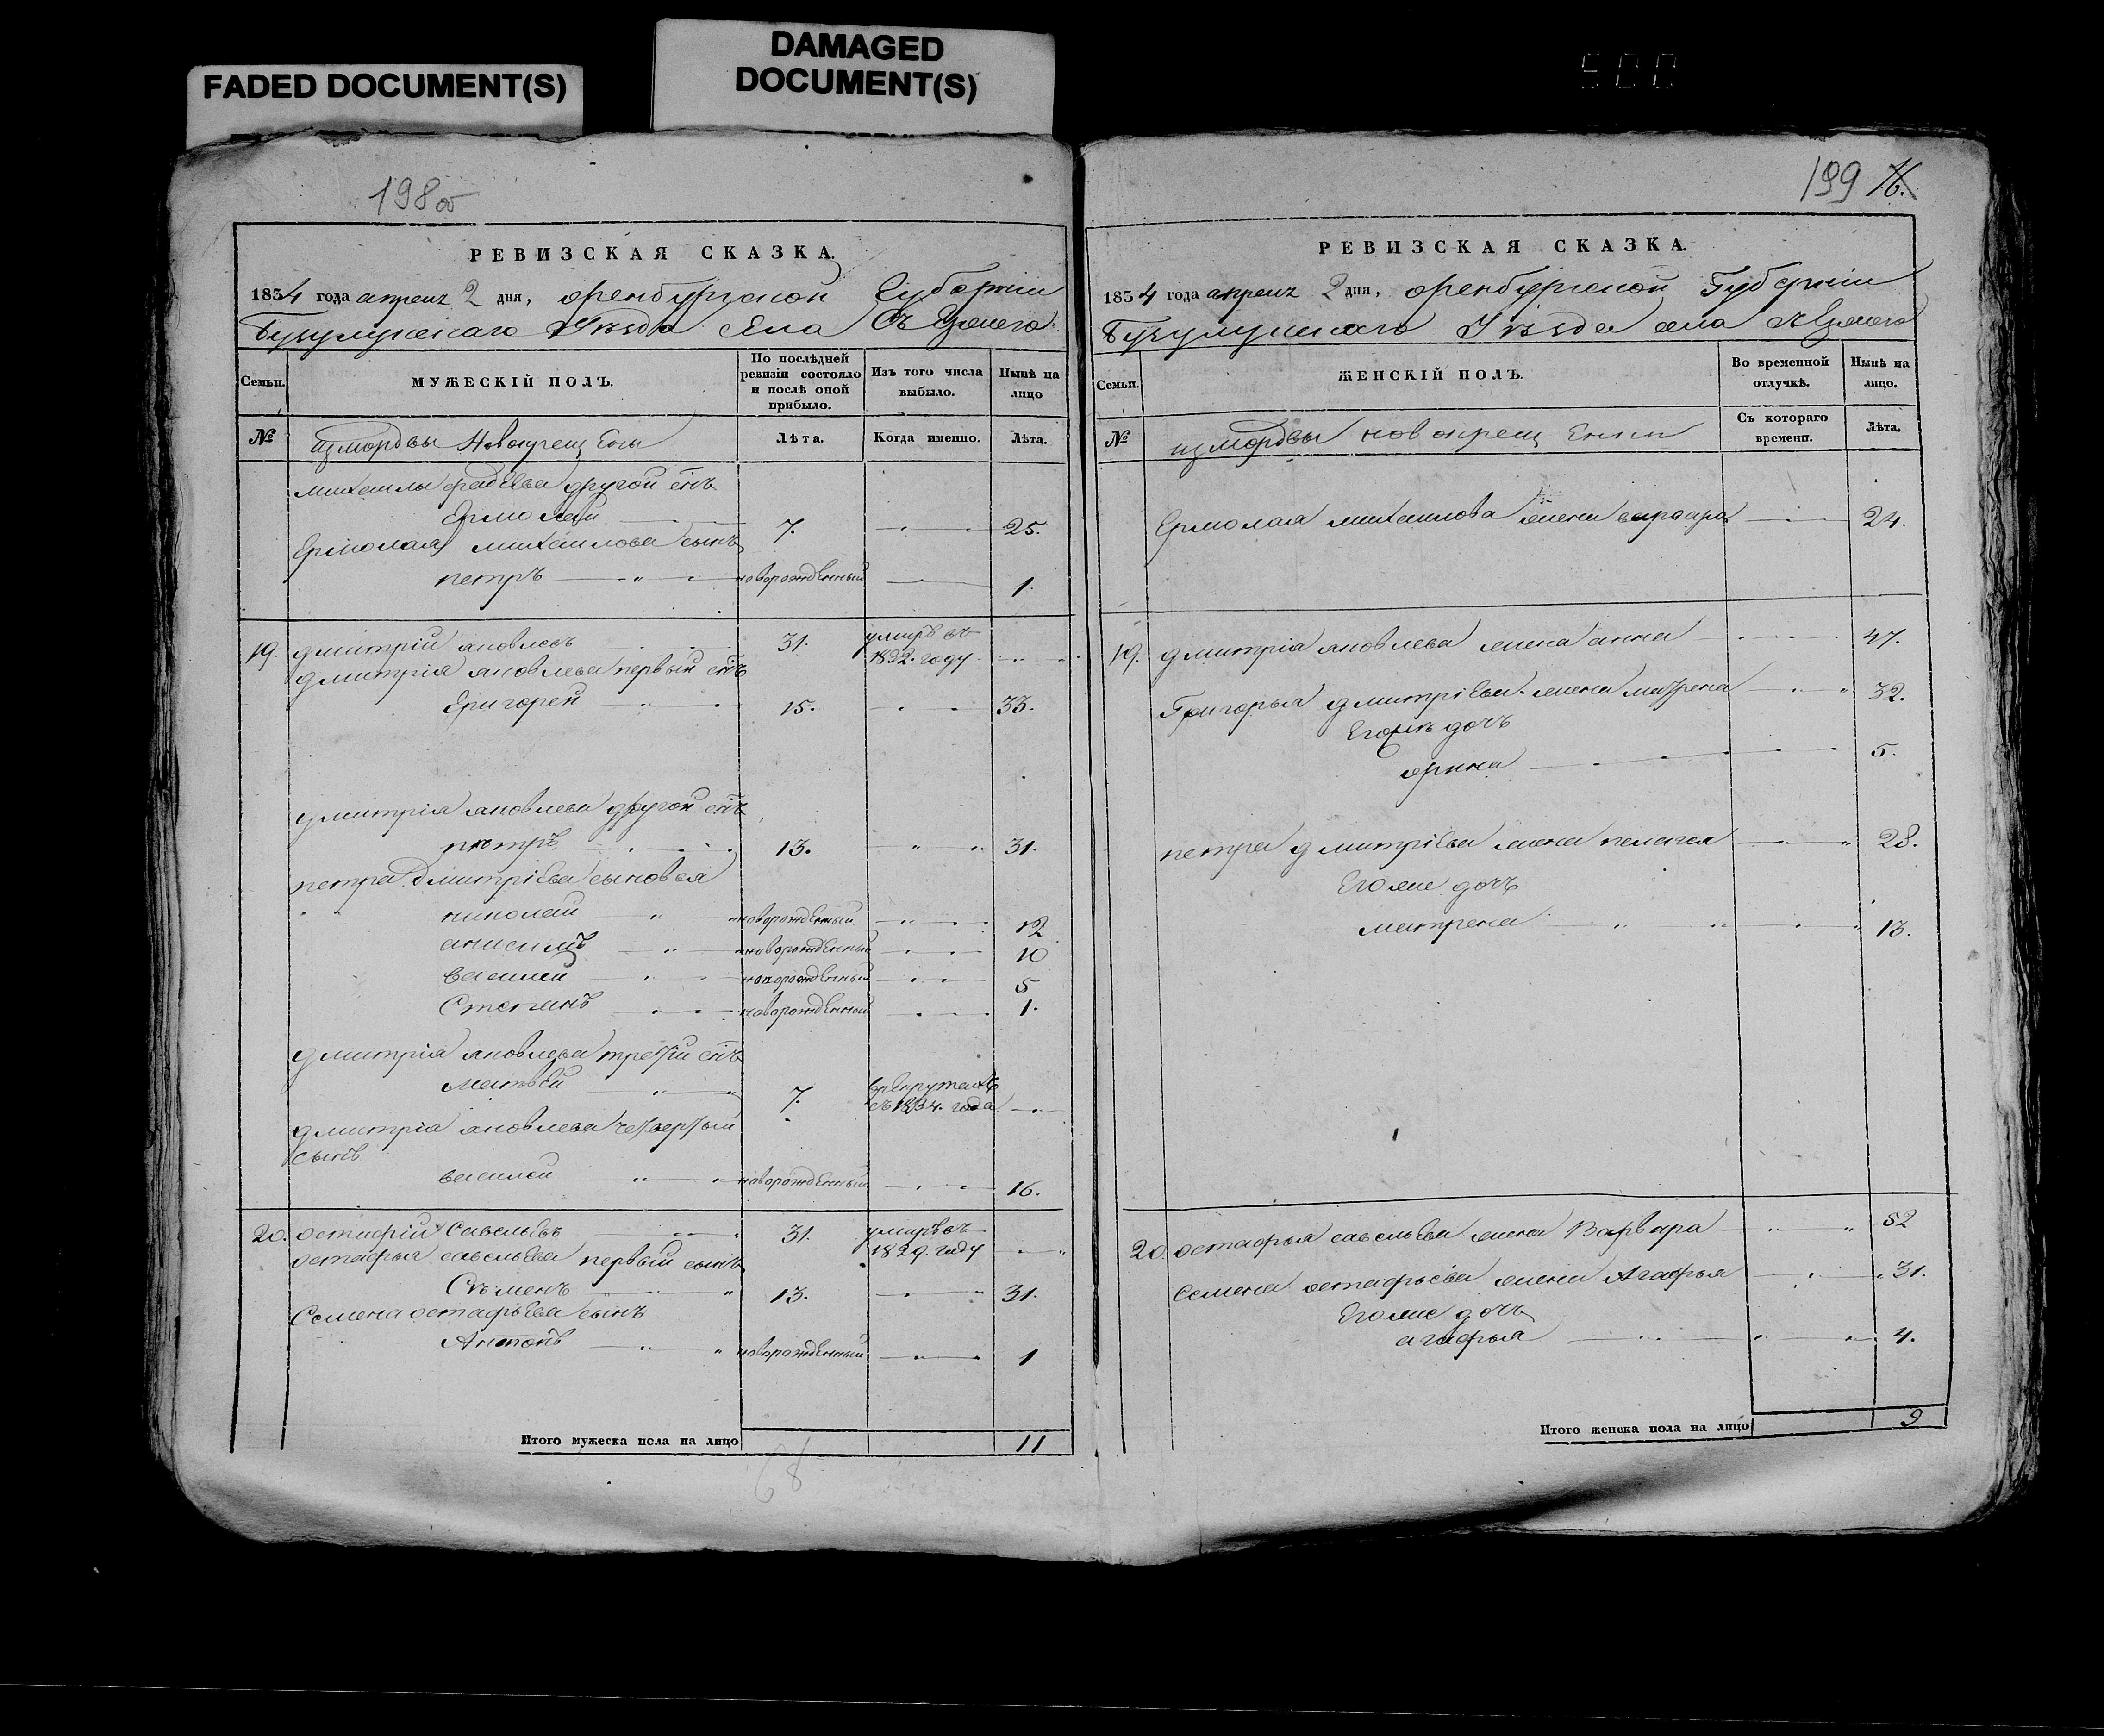 FADED DOCUMENT(S)
DAMAGED
DOCUMENT(S)
500
198 об
РЕВИЗСКАЯ СКАЗКА.
1834 года апреля 2 дня, оренбургской Губернии
Бузулукскаго Уезда села
Семьи.
МУЖЕСКІЙ ПОЛЪ.
По послѣдней ревизіи состояло и послѣ оной прибыло.
Изъ того числа выбыло.
Нынѣ на лицо
№
измордвы Новокрещ
Лѣта.
Когда именно.
Лѣта.
михаилы фадеева другой снъ
Ермолай 7. 25.
Ермолая михаилова сынъ
петръ новорожденный 1.
19. дмитрій яковлевъ 31. умиръ въ 1832. году
дмитрія яковлева первый снъ
Григорей 15. 33.
дмитрія яковлева другой снъ
петръ 13. 31.
петра дмитріева сыновья
николай новорожденный 12
анисимъ новорожденный 10
василей новорожденный 5
Степанъ новорожденный 1.
дмитрія яковлева третій снъ
Матвей 7. врекрутахъ съ 1834. года
дмитрія яковлева четвертый
сынъ
василей новорожденный 16.
20. остафій Савельевъ 31. умиръ въ 1829. году
остафья савельева первый сынъ
Семенъ 13. 31.
Семена остафьева сынъ
Антонъ новорожденный 1
Итого мужеска пола на лицо 11
68
199 16.
РЕВИЗСКАЯ СКАЗКА.
1834 года апреля 2 дня, оренбургской Губерніи
Бузулукскаго Уезда села
Семьи.
ЖЕНСКІЙ ПОЛЪ.
Во временной отлучкѣ.
Нынѣ на лицо.
№
измордвы новокрещ
Съ котораго времени.
Лѣта.
Ермолая михаилова жена варвара 24.
19. дмитрія яковлева жена анна 47.
Григорья дмитріева жена матрена 32.
Егожъ дочь
орина 5.
петра дмитріева жена пелагея 28.
Егоже дочь
матрена 13.
20. остафья савельева жена Варвара 52
семена остафьева жена Агафья 31.
Егоже дочь
агафья 4.
Итого женска пола на лицо 9